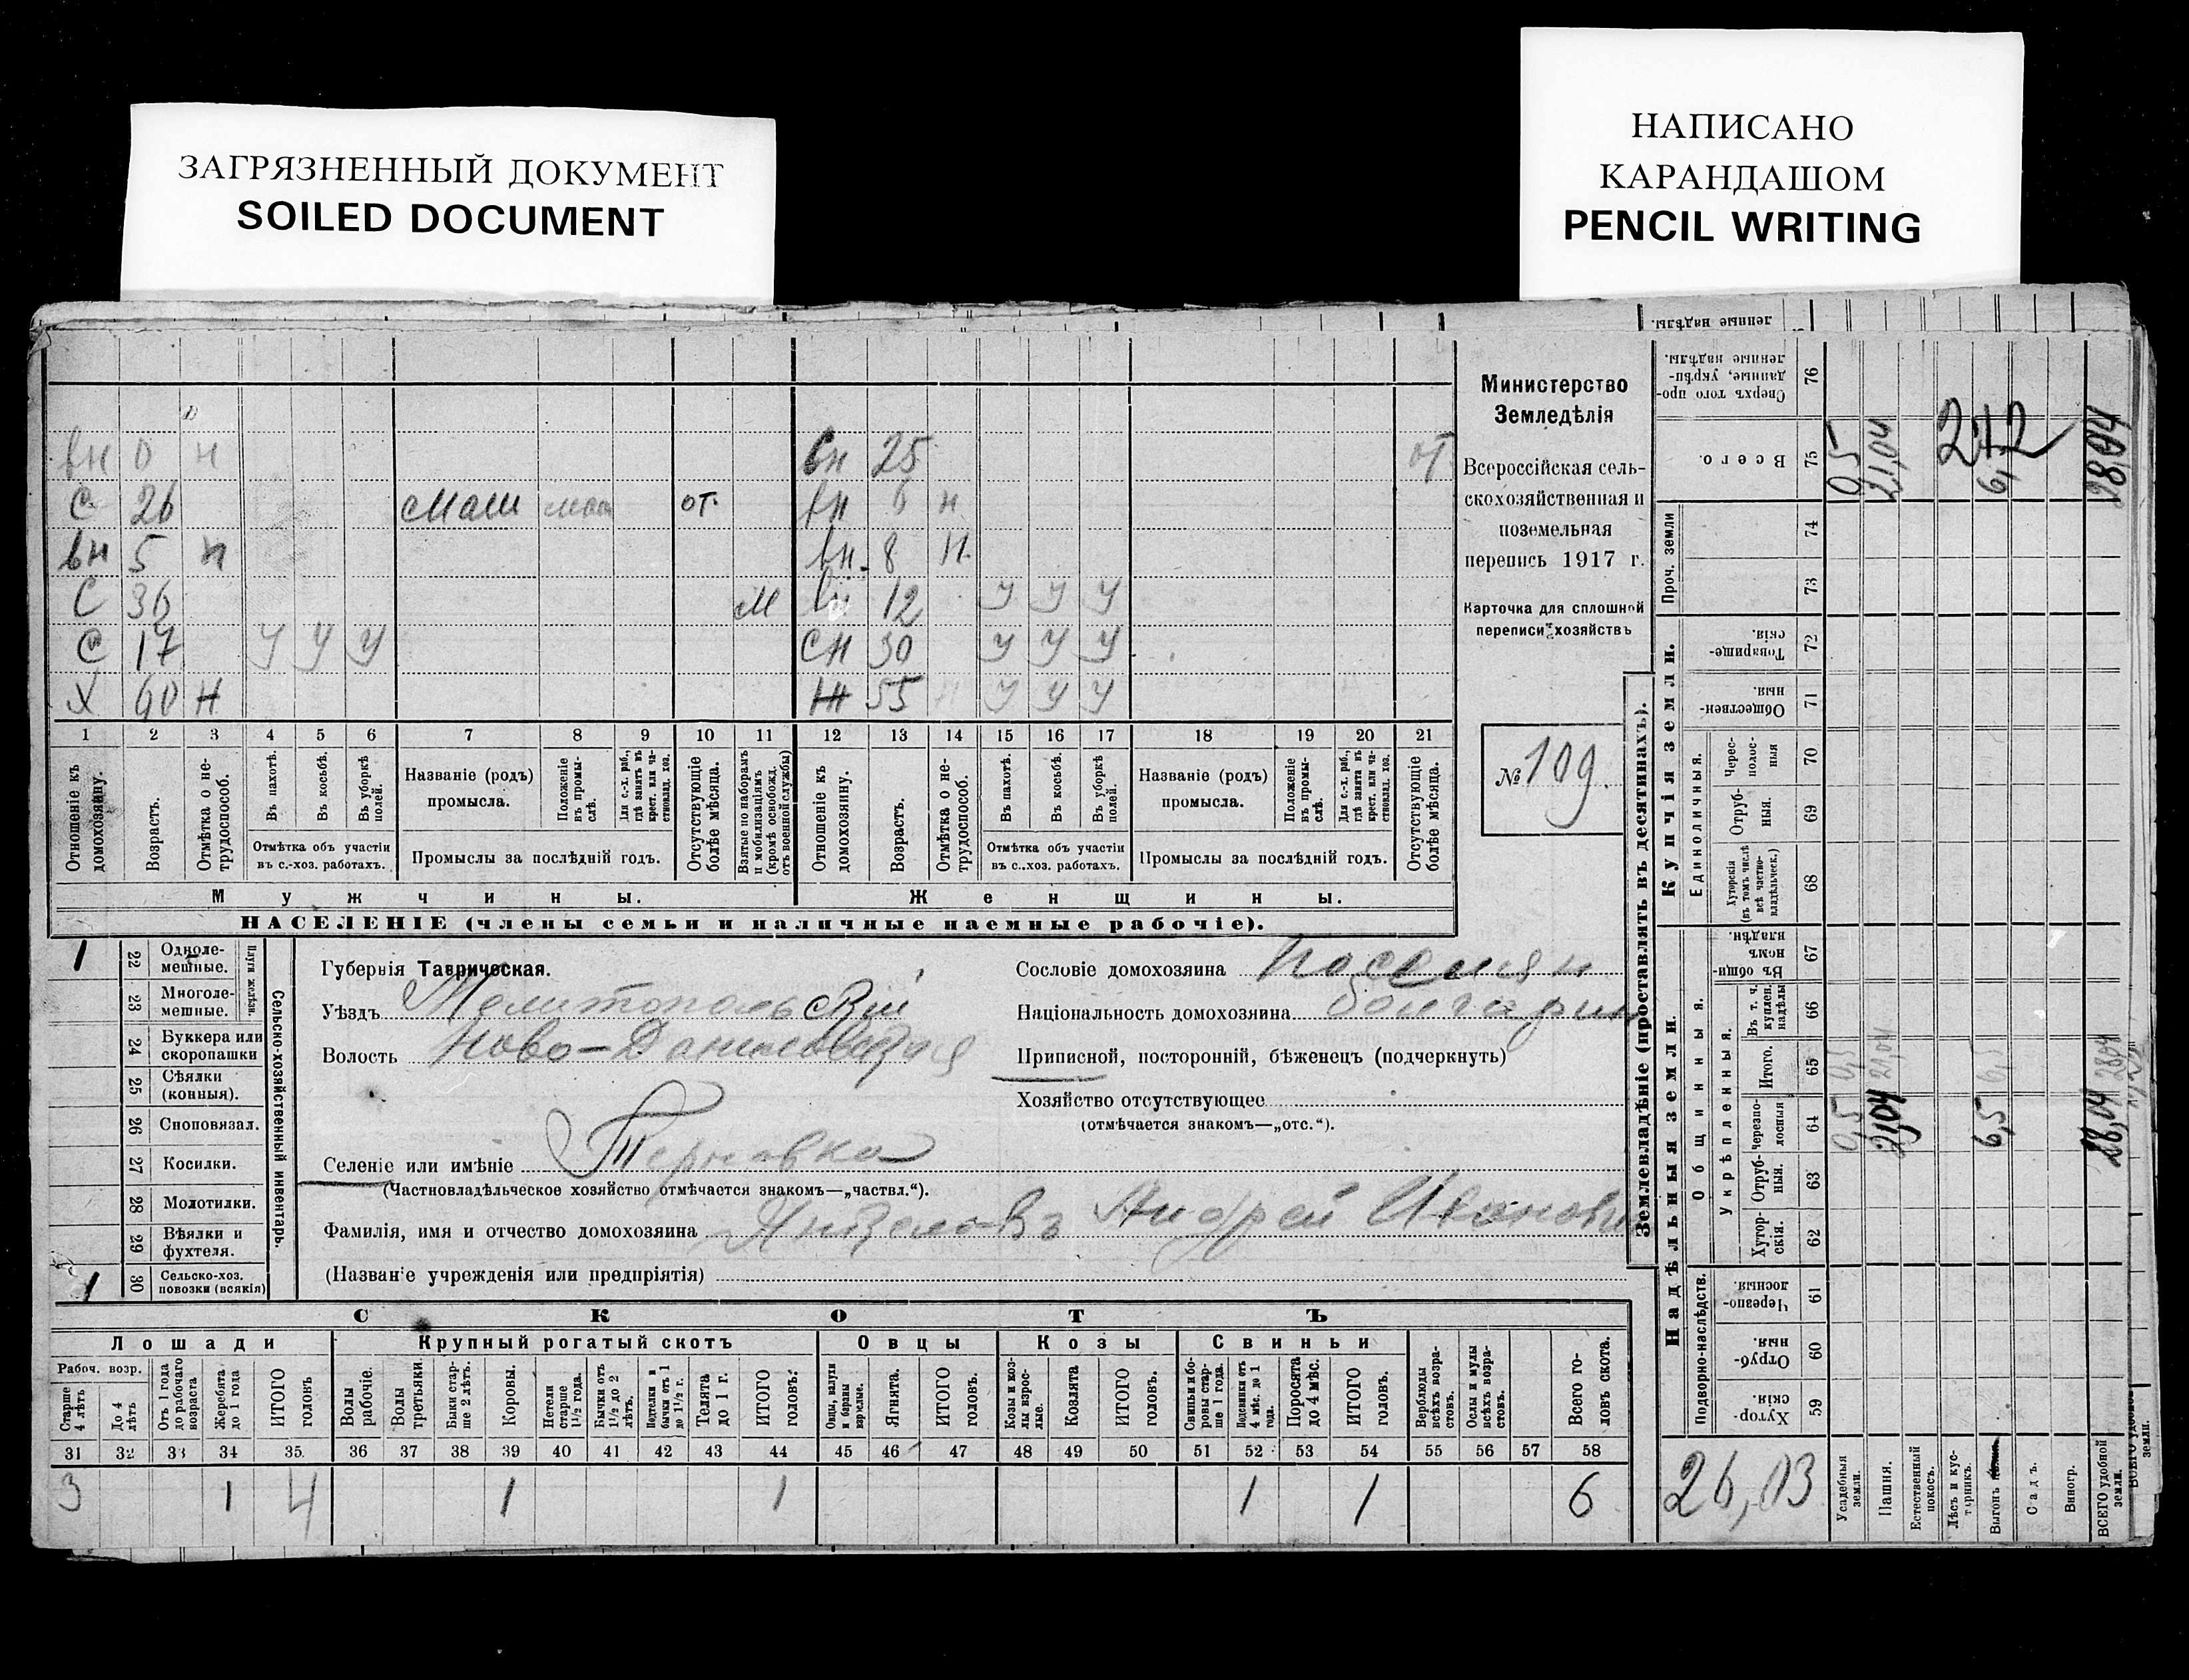 ЗАГРЯЗНЕННЫЙ ДОКУМЕНТ
SOILED DOCUMENT
НАПИСАНО
КАРАНДАШОМ
PENCIL WRITING
вн 0 н вн 25 от
с 26 маш от. вн 6 н
вн 5 н вн. 8 н.
с 36 м вн 12 у у у
с 17 у у у сн 30 у у у
х 60 н 55 у у у
1 2 3 4 5 6 7 8 9 10 11 12 13 14 15 16 17 18 19 20 21
Отношеніе къ домохозяину.
Возрастъ.
Отмѣтка о не-трудоспособ.
Въ пахотѣ.
Въ косьбѣ.
Въ уборкѣ полей.
Отмѣтка объ участіи
въ с.-хоз. работахъ.
Названіе (родъ)
промысла.
Положеніе въ промы-слѣ.
Для с.-х. раб., гдѣ занятъ въ крест. или ча-стновлад. хоз.
Промыслы за послѣдній годъ.
Отсутствующіе болѣе мѣсяца.
Взятые по наборамъ и мобилизаціямъ (кромѣ освобожд. отъ военной службы)
Отношеніе къ домохозяину.
Возрастъ.
Отмѣтка о не-трудоспособ.
Въ пахотѣ.
Въ косьбѣ.
Въ уборкѣ полей.
Отмѣтка объ участіи
въ с.-хоз. работахъ.
Названіе (родъ)
промысла.
Положеніе въ промы-слѣ.
Для с.-х. раб., гдѣ занята въ крест. или ча-стновлад. хоз.
Промыслы за послѣдній годъ.
Отсутствующіе болѣе мѣсяца.
Мужчины. Женщины.
НАСЕЛЕНІЕ (члены семьи и наличные наемные рабочіе).
Министерство
Земледѣлія
Всероссійская сель-
скохозяйственная и
поземельная
перепись 1917 г.
Карточка для сплошной
переписи хозяйствъ
№ 109.
1 22 Одноле-мешные.
Плуги желѣзн.
23 Многоле-мешные.
24 Буккера или скоропашки
25 Сѣялки (конныя).
26 Сноповязал.
27 Косилки.
28 Молотилки.
29 Вѣялки и фухтеля.
1 30 Сельско-хоз. повозки (всякія)
Сельско-хозяйственный инвентарь.
Губернія Таврическая.
Уѣздъ Мелитопольскій
Волость Ново-Даниловская
Селеніе или имѣніе Терновка
(Частновладѣльческое хозяйство отмѣчается знакомъ—„частвл.“).
Фамилія, имя и отчество домохозяина Андрей Иванович
(Названіе учрежденія или предпріятія)
Сословіе домохозяина поселян
Національность домохозяина болгарин
Приписной, посторонній, бѣженецъ (подчеркнуть)
Хозяйство отсутствующее
(отмѣчается знакомъ—„отс.“).
СКОТЪ
Лошади Крупный рогатый скотъ Овцы Козы Свиньи
Рабоч. возр.
Старше 4 лѣтъ
До 4 лѣтъ
Отъ 1 года до рабочаго возраста
Жеребята до 1 года
ИТОГО головъ
Волы рабочіе.
Волы третьяки.
Быки стар-ше 2 лѣтъ.
Коровы.
Нетели старше 1½ года.
Бычки отъ 1½ до 2 лѣтъ.
Подтелки и бычки отъ 1 до 1½ г.
Телята до 1 г.
ИТОГО головъ.
Овцы, валухи и бараны взрослые.
Ягнята.
ИТОГО головъ.
Козы и коз-лы взрос-лые.
Козлята
ИТОГО головъ.
Свиньи и бо-ровы стар-ше 1 года.
Подсвинки отъ 4 мѣс. до 1 года.
Поросята до 4 мѣс.
ИТОГО головъ.
Верблюды всѣхъ возра-стовъ.
Ослы и мулы всѣхъ возра-стовъ.
Всего го-ловъ скота.
31 32 33 34 35 36 37 38 39 40 41 42 43 44 45 46 47 48 49 50 51 52 53 54 55 56 57 58
3 1 4 1 1 1 1 6
Землевладѣніе (проставлять въ десятинахъ).
ленные надѣлы.
Сверхъ того про-данные, укрѣп-ленные надѣлы. 76
Всего. 75 0,5 21,04 6,5 28,04
Проч. земли 74
73
Купчія земли.
Товарище-скія. 72
Обществен-ныя. 71
Единоличныя.
Черес-полос-ныя 70
Отруб-ныя. 69
Хуторскія (въ томъ числѣ всѣ частно-владѣльческ.) 68
Надѣльныя земли.
Общинныя.
Въ общин-номъ владѣн. 67
Укрѣпленныя.
Въ т. ч. куплен. надѣлы 66
Итого. 65 0,5 21,04 6,5 28,04
Черезпо-лосныя 64 0,5 21,04 6,5 28,04
Отруб-ныя. 63
Хутор-скія. 62
Подворно-наслѣдств.
Черезпо-лосныя. 61
Отруб-ныя. 60
Хутор-скія. 59
26,03
Усадебныя земли.
Пашня.
Естественный покосъ.
Лѣсъ и кус-тарникъ.
Выгонъ
Садъ.
Виногр.
ВСЕГО удобной земли.